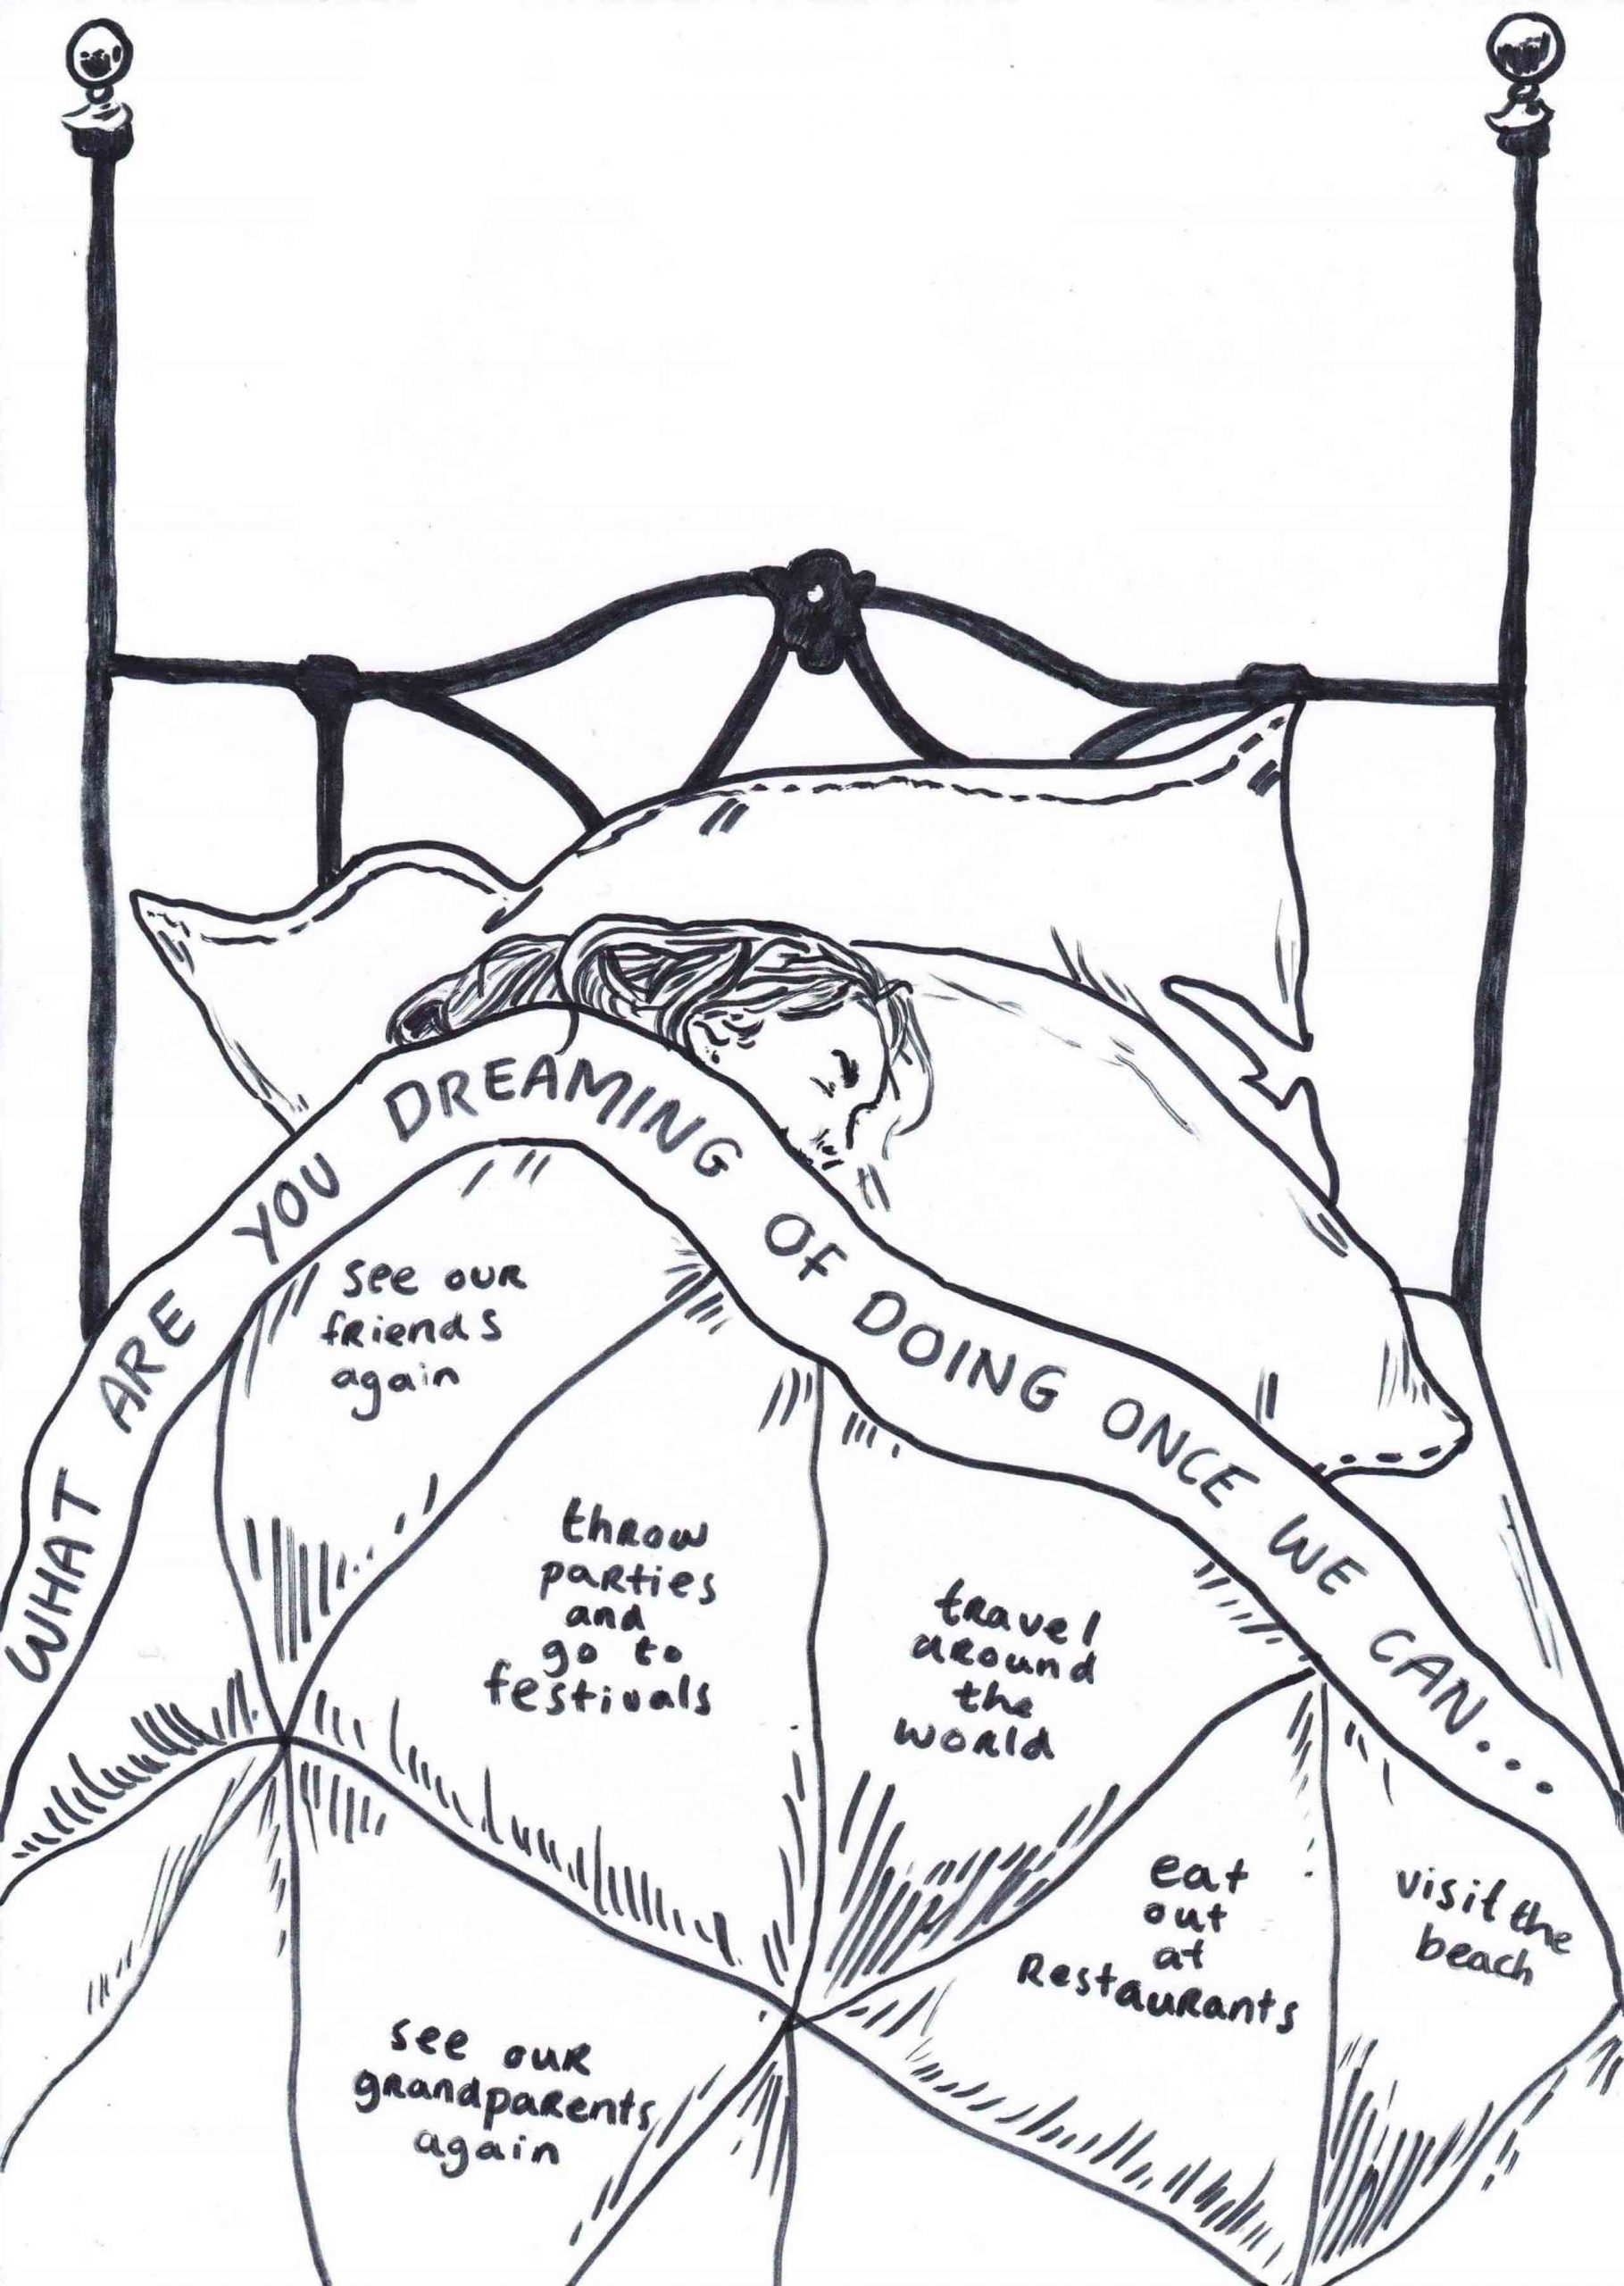 WHAT ARE YOU DREAMING OF DOING ONCE WE CAN...
see our
friends
again
throw
parties
and
go to
festivals
travel
around
the
world
eat
out
at
Restaurants
visit the
beach
see our
grandparents
again